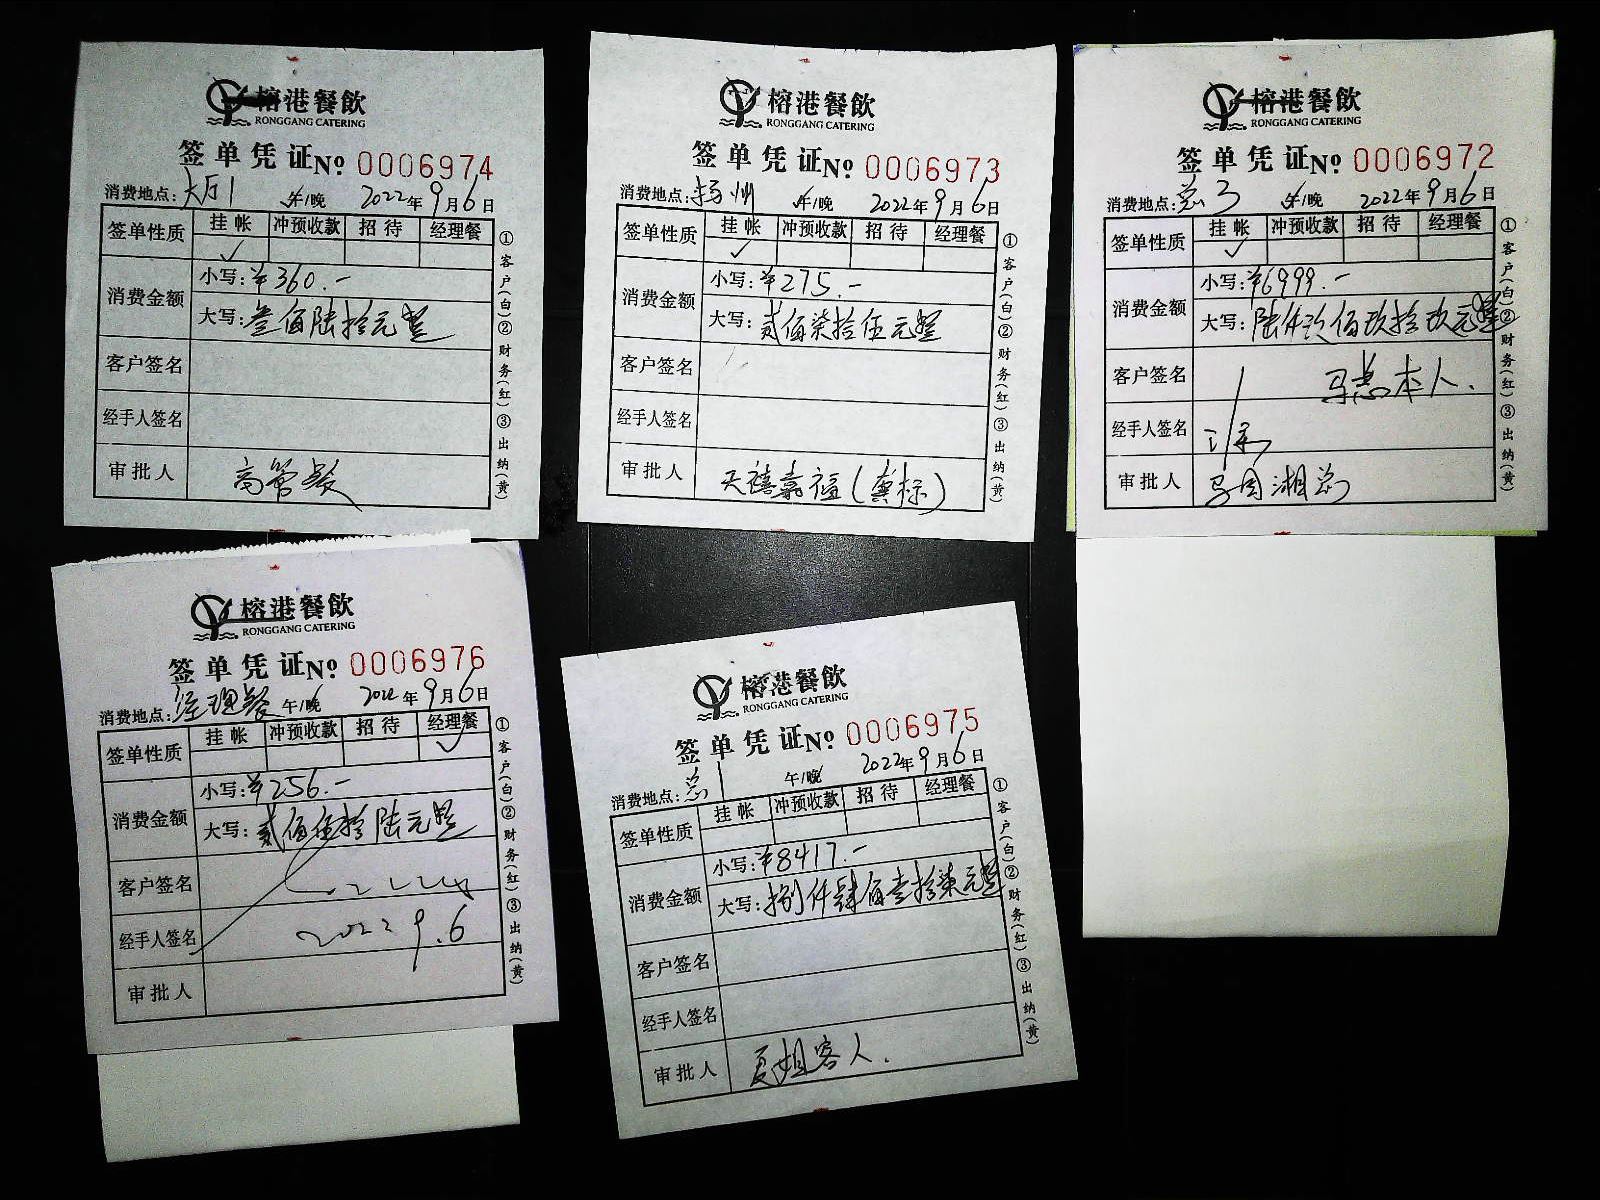 榕港餐飲
RONGGANG CATERING
签单凭证 No 0006974
消费地点: 大厅1 午/晚 2022年9月6日
签单性质 挂帐 冲预收款 招待 经理餐
✓
消费金额 小写:¥360.-
大写:叁佰陆拾元整
客户签名
经手人签名
审批人 高管餐
①客户(白)②财务(红)③出纳(黄)
榕港餐飲
RONGGANG CATERING
签单凭证 No 0006973
消费地点: 扬州 午/晚 2022年9月6日
签单性质 挂帐 冲预收款 招待 经理餐
✓
消费金额 小写:¥275.-
大写:贰佰柒拾伍元整
客户签名
经手人签名
审批人 天禧嘉福(龚标)
①客户(白)②财务(红)③出纳(黄)
榕港餐飲
RONGGANG CATERING
签单凭证 No 0006972
消费地点: 总3 午/晚 2022年9月6日
签单性质 挂帐 冲预收款 招待 经理餐
✓
消费金额 小写:¥6999.-
大写:陆仟玖佰玖拾玖元整
客户签名 马总本人.
经手人签名
审批人 马国湘总
①客户(白)②财务(红)③出纳(黄)
榕港餐飲
RONGGANG CATERING
签单凭证 No 0006976
消费地点: 经理餐 午/晚 2022年9月6日
签单性质 挂帐 冲预收款 招待 经理餐
✓
消费金额 小写:¥256.-
大写:贰佰伍拾陆元整
客户签名
经手人签名 2022 9.6
审批人
①客户(白)②财务(红)③出纳(黄)
榕港餐飲
RONGGANG CATERING
签单凭证 No 0006975
消费地点: 总1 午/晚 2022年9月6日
签单性质 挂帐 冲预收款 招待 经理餐
消费金额 小写:¥8417.-
大写:捌仟肆佰壹拾柒元整
客户签名
经手人签名
审批人 夏姐客人.
①客户(白)②财务(红)③出纳(黄)